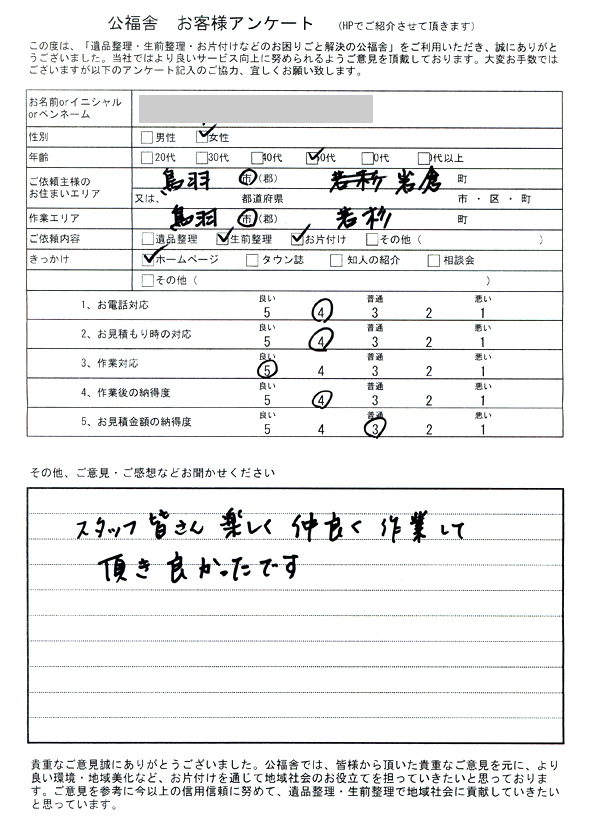 公福舎 お客様アンケート (HPでご紹介させて頂きます)
この度は、「遺品整理・生前整理・お片付けなどのお困りごと解決の公福舎」をご利用いただき、誠にありがと
うございました。当社ではより良いサービス向上に努められるようご意見を頂戴しております。大変お手数では
ございますが以下のアンケート記入のご協力、宜しくお願い致します。
お名前orイニシャル
orペンネーム
性別 男性 女性
年齢 20代 30代 40代 50代 60代 70代以上
ご依頼主様の
お住まいエリア
鳥羽 市(郡) 岩倉 町
又は、 都道府県 市・区・町
作業エリア 鳥羽 市(郡) 岩杉 町
ご依頼内容 遺品整理 生前整理 お片付け その他( )
きっかけ ホームページ タウン誌 知人の紹介 相談会
その他( )
良い 普通 悪い
1、お電話対応 5 4 3 2 1
良い 普通 悪い
2、お見積もり時の対応 5 4 3 2 1
良い 普通 悪い
3、作業対応 5 4 3 2 1
良い 普通 悪い
4、作業後の納得度 5 4 3 2 1
良い 普通 悪い
5、お見積金額の納得度 5 4 3 2 1
その他、ご意見・ご感想などお聞かせください
スタッフ皆さん楽しく仲良く作業して
頂き良かったです
貴重なご意見誠にありがとうございました。公福舎では、皆様から頂いた貴重なご意見を元に、より
良い環境・地域美化など、お片付けを通じて地域社会のお役立てを担っていきたいと思っておりま
す。ご意見を参考に今以上の信用信頼に努めて、遺品整理・生前整理で地域社会に貢献していきたい
と思っています。